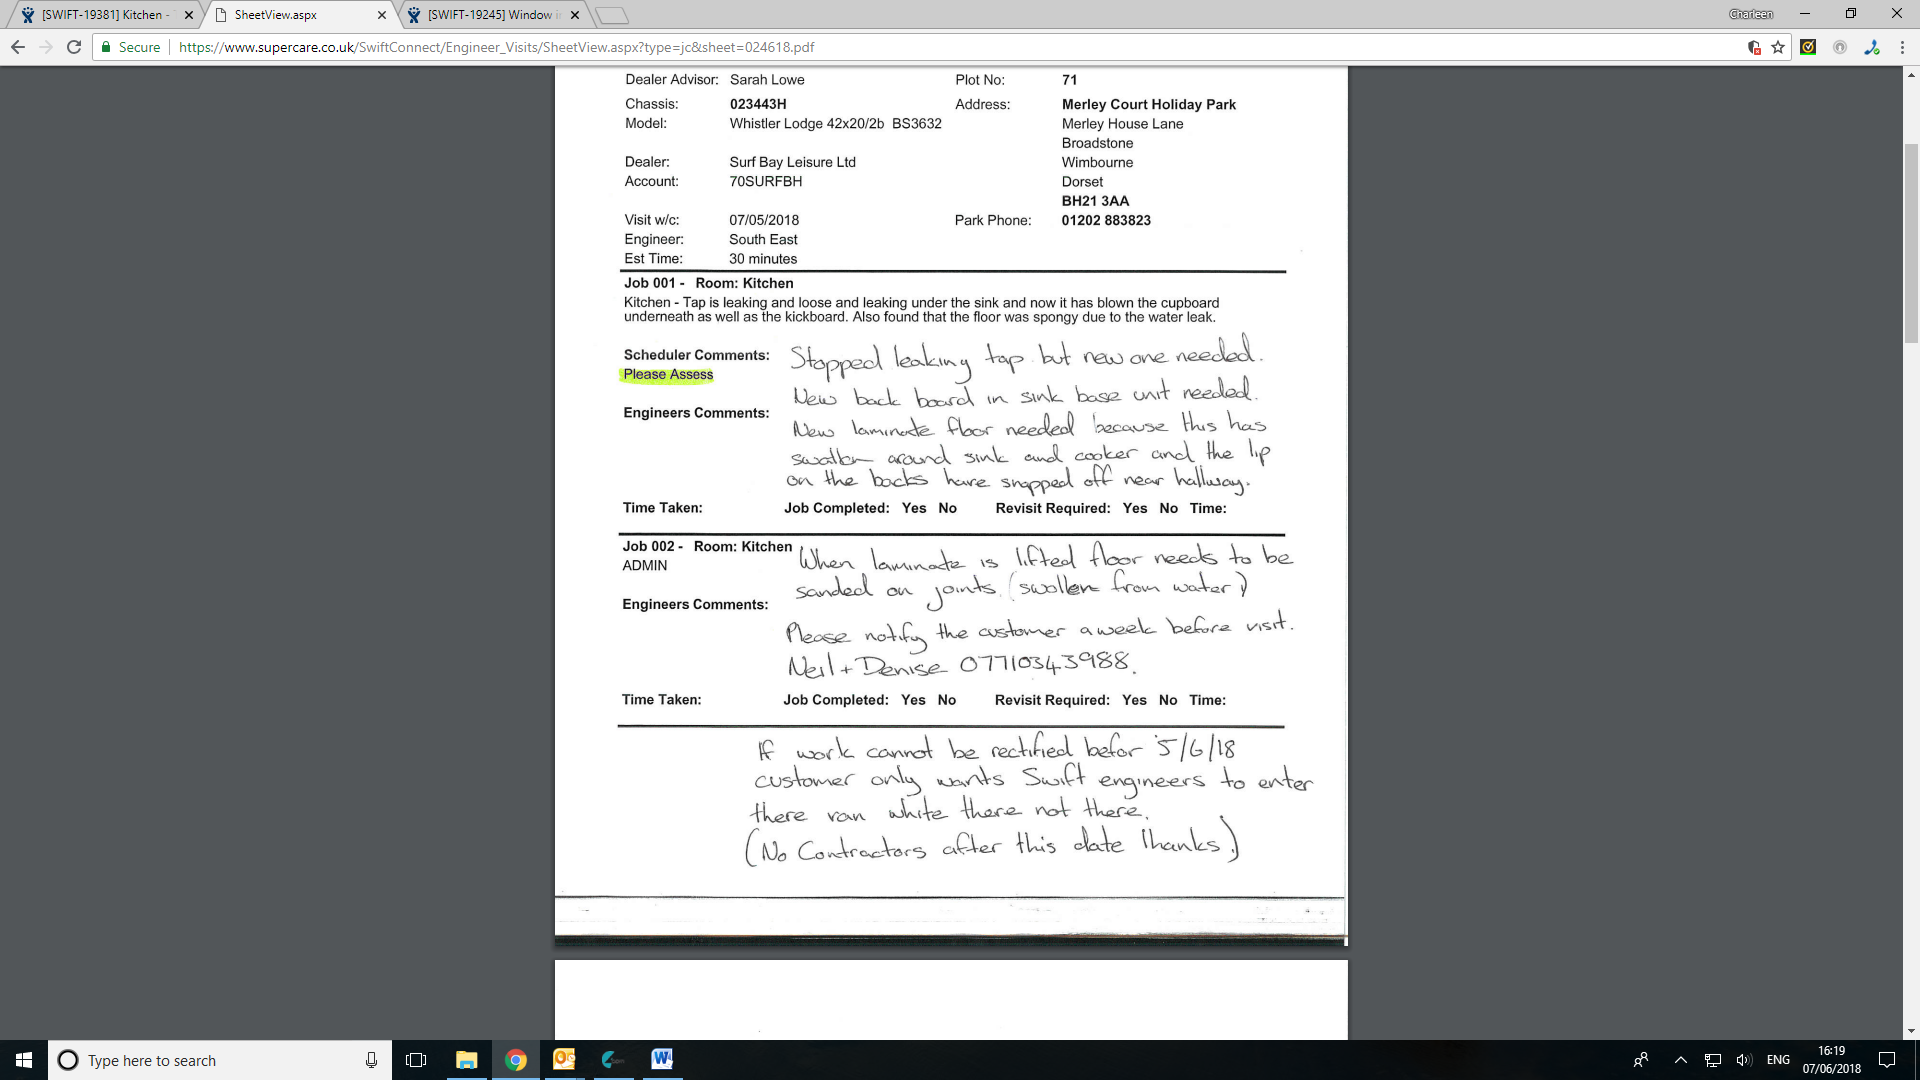 [SWIFT-19381] Kitchen -
SheetView.aspx
[SWIFT-19245] Window i
Charleen
Secure
https://www.supercare.co.uk/SwiftConnect/Engineer_Visits/SheetView.aspx?type=jc&sheet=024618.pdf
Dealer Advisor: Sarah Lowe Plot No: 71
Chassis: 023443H Address: Merley Court Holiday Park
Model: Whistler Lodge 42x20/2b BS3632 Merley House Lane
Broadstone
Dealer: Surf Bay Leisure Ltd Wimbourne
Account: 70SURFBH Dorset
BH21 3AA
Visit w/c: 07/05/2018 Park Phone: 01202 883823
Engineer: South East
Est Time: 30 minutes
Job 001 - Room: Kitchen
Kitchen - Tap is leaking and loose and leaking under the sink and now it has blown the cupboard
underneath as well as the kickboard. Also found that the floor was spongy due to the water leak.
Scheduler Comments: Stopped leaking tap but new one needed.
Please Assess
New back board in sink base unit needed.
Engineers Comments:
New laminate floor needed because this has
swollen around sink and cooker and the lip
on the backs have snapped off near hallway.
Time Taken: Job Completed: Yes No Revisit Required: Yes No Time:
Job 002 - Room: Kitchen
When laminate is lifted floor needs to be
ADMIN
sanded on joints. (swollen from water)
Engineers Comments:
Please notify the customer a week before visit.
Neil + Denise 07710343988.
Time Taken: Job Completed: Yes No Revisit Required: Yes No Time:
If work cannot be rectified befor 5/6/18
customer only wants Swift engineers to enter
there van white there not there.
(No Contractors after this date thanks.)
Type here to search
ENG
16:19
07/06/2018